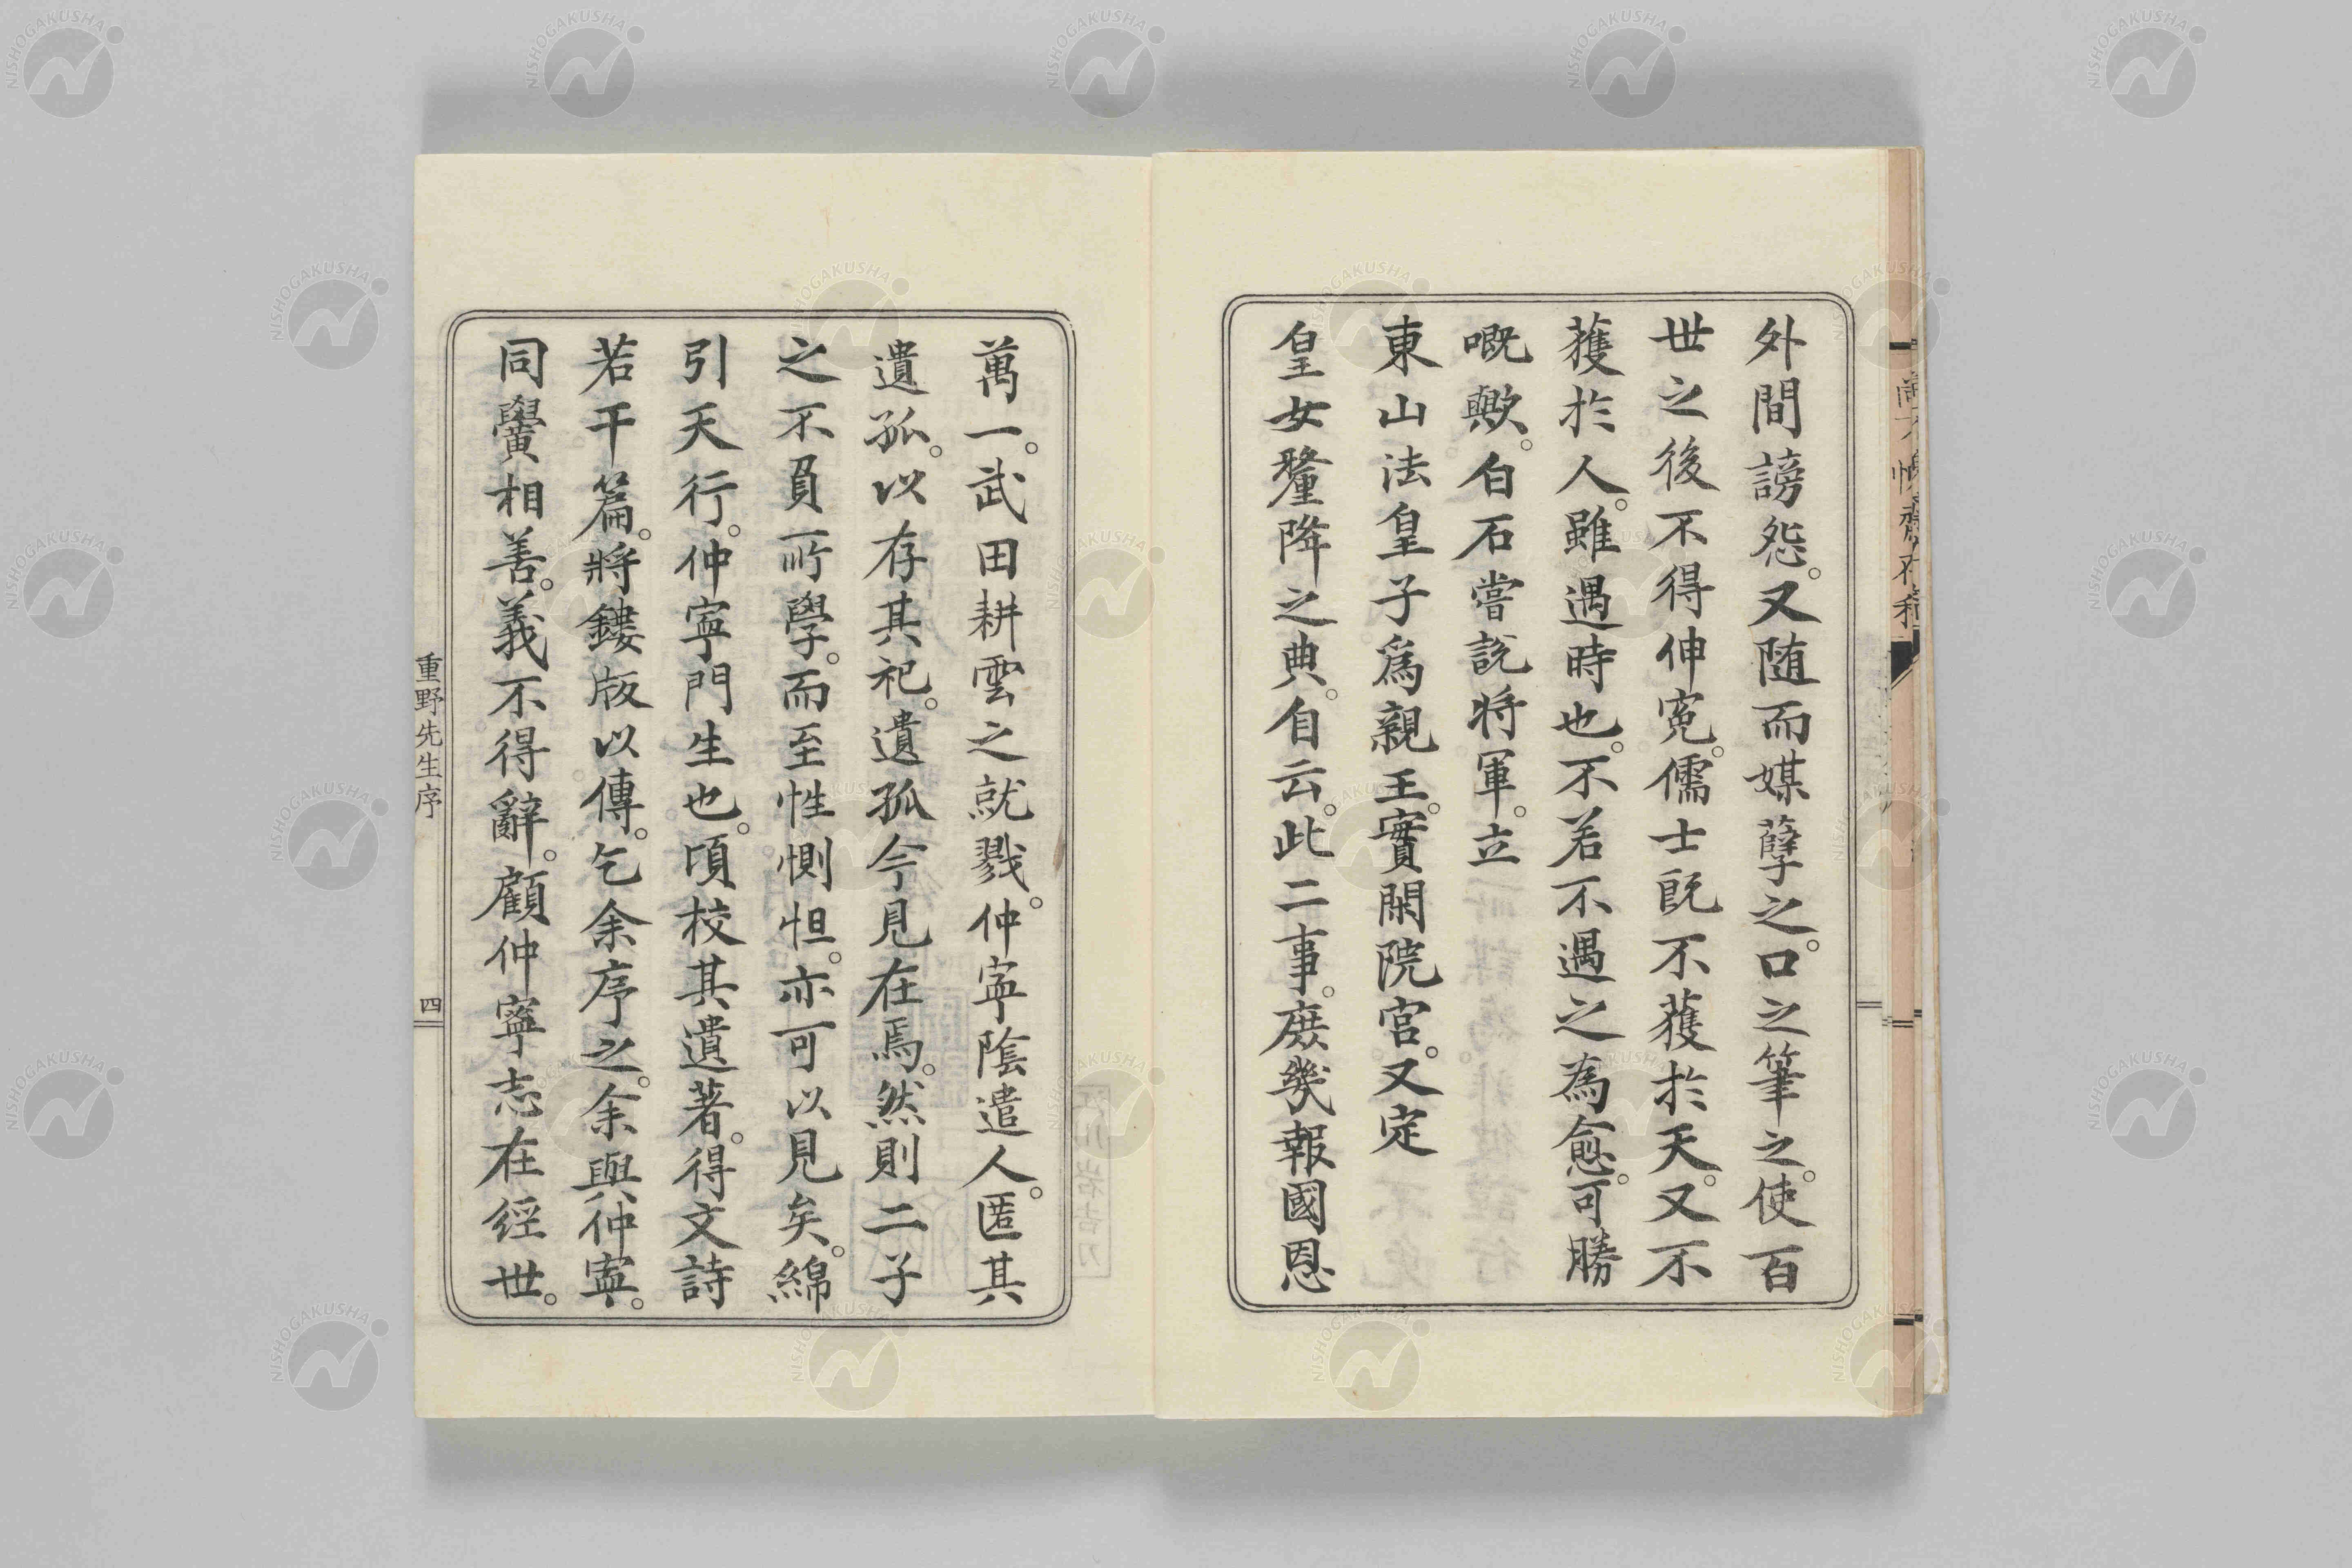 外間謗怨。又随而媒孽之。口之筆之。使百
世之後不得伸寃。儒士既不獲於天。又不
獲於人。雖遇時也。不若不遇之為愈。可勝
嘅歟。白石嘗説将軍。立
東山法皇子為親王。實閑院宮。又定
皇女釐降之典。自云。此二事。庶幾報國恩
萬一。武田耕雲之就戮。仲寧陰遣人。匿其
遺孤。以存其祀。遺孤今見在焉。然則二子
之不負所學。而至性惻怛。亦可以見矣。綿
引天行。仲寧門生也。頃校其遺著。得文詩
若干篇。將鏤版以傳。乞余序之。余與仲寧。
同黌相善。義不得辭。顧仲寧志在經世。
重野先生序
四
NISHOGAKUSHA